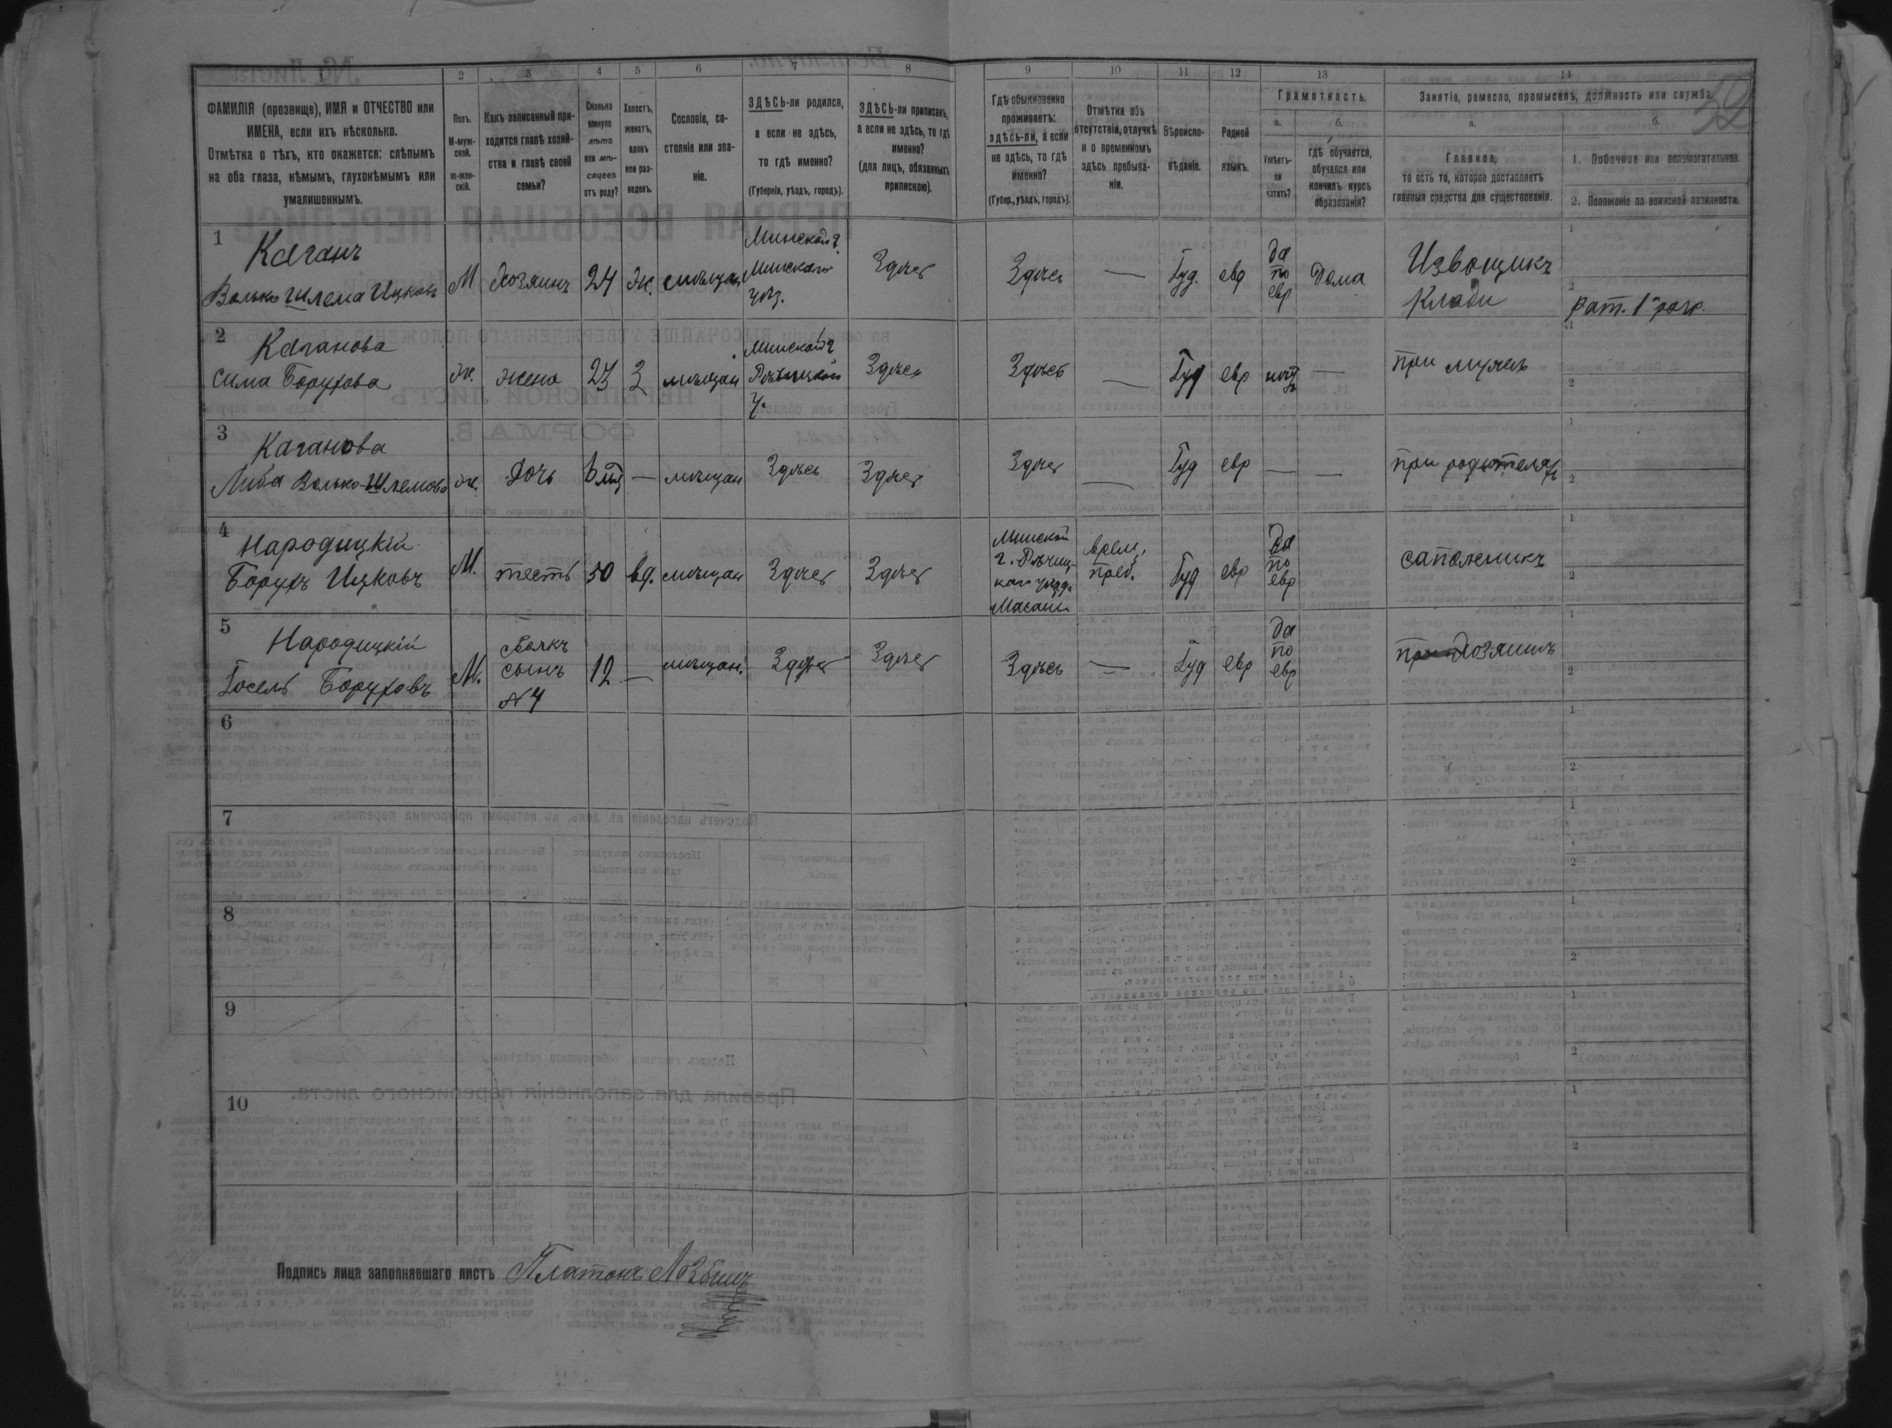 2 3 4 5 6 7 8 9 10 11 12 13 14
ФАМИЛІЯ (прозвище), ИМЯ и ОТЧЕСТВО или
ИМЕНА, если ихъ нѣсколько.
Отмѣтка о тѣхъ, кто окажется: слѣпымъ
на оба глаза, нѣмымъ, глухонѣмымъ или
умалишеннымъ.
Полъ.
М-муж-
ской.
ж-жен-
скій.
Какъ записанный при-
ходится главѣ хозяй-
ства и главѣ своей
семьи?
Сколько
минуло
лѣтъ
или мѣ-
сяцевъ
отъ роду?
Холостъ,
женатъ,
вдовъ
или раз-
веденъ.
Сословіе, со-
стояніе или зва-
ніе.
ЗДѢСЬ-ли родился,
а если не здѣсь,
то гдѣ именно?
(Губернія, уѣздъ, городъ).
ЗДѢСЬ-ли приписанъ,
а если не здѣсь, то гдѣ
именно?
(для лицъ, обязанныхъ
припискою).
Гдѣ обыкновенно
проживаетъ:
здѣсь-ли, а если
не здѣсь, то гдѣ
именно?
(Губер., уѣздъ, городъ).
Отмѣтка объ
отсутствіи, отлучкѣ
и о временномъ
здѣсь пребыва-
ніи.
Вѣроиспо-
вѣданіе.
Родной
языкъ.
Грамотность.
а.
Умѣетъ-
ли
читать?
б.
гдѣ обучается,
обучался или
кончилъ курсъ
образованія?
Занятіе, ремесло, промыселъ, должность или служба.
а.
Главное,
то есть то, которое доставляетъ
главныя средства для существованія.
б.
1. Побочное или вспомогательное.
2. Положеніе по воинской повинности.
1
Каганъ
Волько Шлема Ицковъ
М
Хозяинъ
24
Ж.
мѣщан
Минской г
Минскаго
уѣз.
Здѣсь
Здѣсь
—
Іуд.
евр
да
по
евр
Дома
Извощикъ
Клади
1
2
Рат. 1 разр.
2
Каганова
Сима Борухова
Ж.
жена
23
З
мѣщан
Минской г
Рѣчицкого
у.
Здѣсь
Здѣсь
—
Іуд
евр
нѣтъ
—
при мужѣ
1
2
3
Каганова
Либа Волько-Шлемова
Ж.
Дочь
6 мѣ
—
мѣщан
Здѣсь
Здѣсь
Здѣсь
—
Іуд
евр
—
—
при родителяхъ
1
2
4
Народицкій
Борухъ Ицковъ
М.
тесть
50
вд.
мѣщан
Здѣсь
Здѣсь
Минской
г. Рѣчиц-
каго уѣзда
врем.
преб.
Іуд
евр
Да
по
евр
сапожникъ
1
2
5
Народицкій
Іосель Боруховъ
М.
сынъ
№ 4
12
—
мѣщан.
Здѣсь
Здѣсь
Здѣсь
—
Іуд
евр
да
по
евр
хозяинъ
1
2
6
1
2
7
1
2
8
1
2
9
1
2
10
1
2
Подпись лица заполнявшаго листъ Платонъ